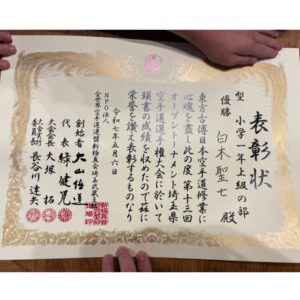 表彰状
型 小学一年上級の部
優勝 白木聖七 殿
東方古傳日本空手道修業に
心魂を盡し此の度 第十三回
オープントーナメント埼玉県
空手道選手権大会に於いて
頭書の成績を収めたので茲に
栄誉を讃え表彰するものなり
令和七年五月六日
NPO法人
全世界空手道連盟新極真会埼玉武蔵支部
創始者 大山倍達
代表 緑健児
大会会長 大塚拓
大会実行委員長 長谷川達矢